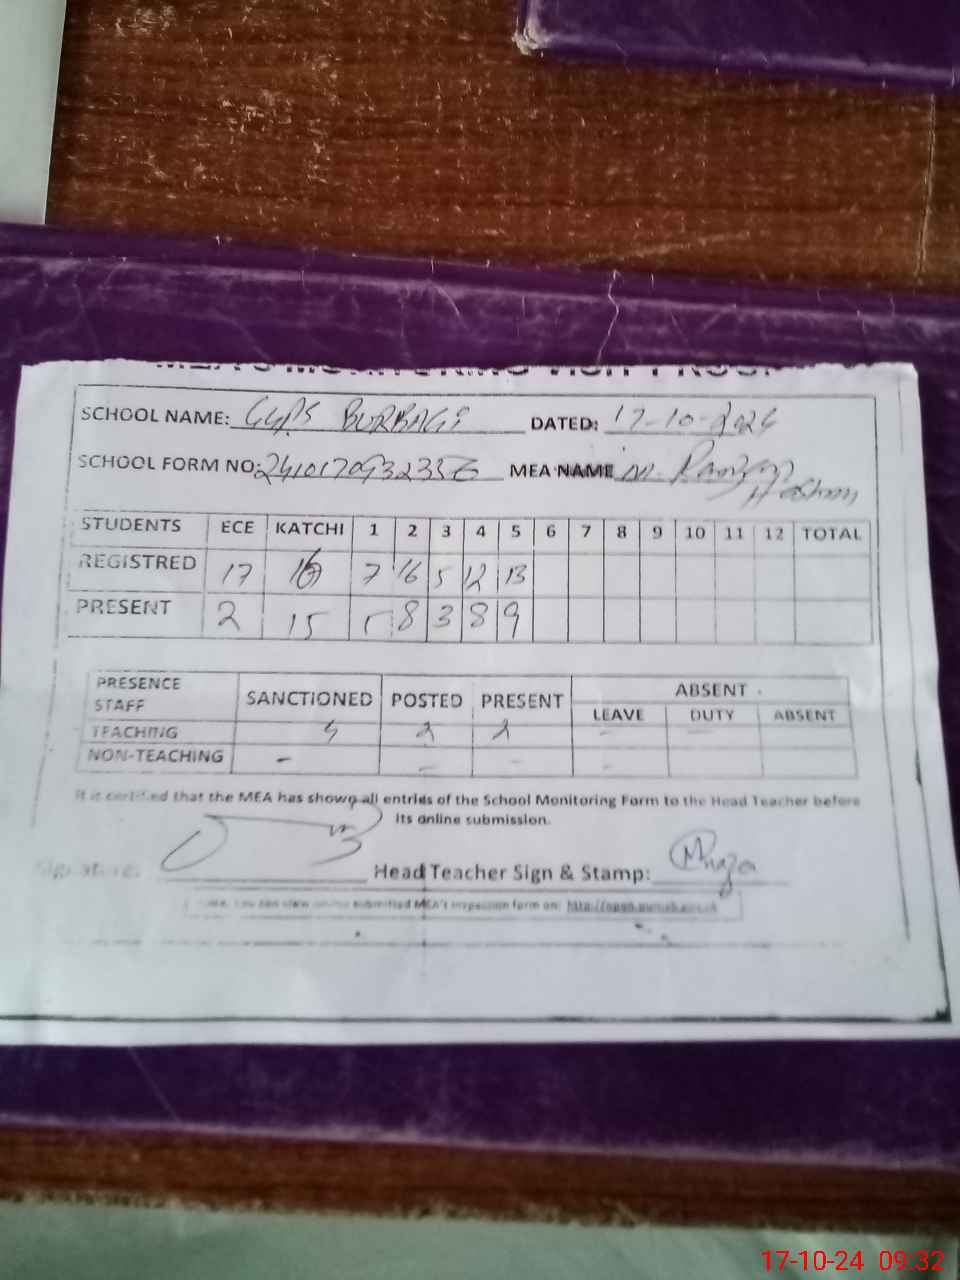 MEA'S MONITORING VISIT PROOF
SCHOOL NAME: GGPS BURBAGI DATED: 17-10-2024
SCHOOL FORM NO: MEA NAME M.
STUDENTS ECE KATCHI 1 2 3 4 5 6 7 8 9 10 11 12 TOTAL
REGISTRED 17 7 16 5 12 13
PRESENT 2 15 5 8 3 8 9
PRESENCE STAFF SANCTIONED POSTED PRESENT ABSENT
LEAVE DUTY ABSENT
TEACHING 2 2 - -
NON-TEACHING - - - -
It is certified that the MEA has shown all entries of the School Monitoring Form to the Head Teacher before
its online submission.
Signature: Head Teacher Sign & Stamp:
submitted MEA's inspection form on:
17-10-24 09:32